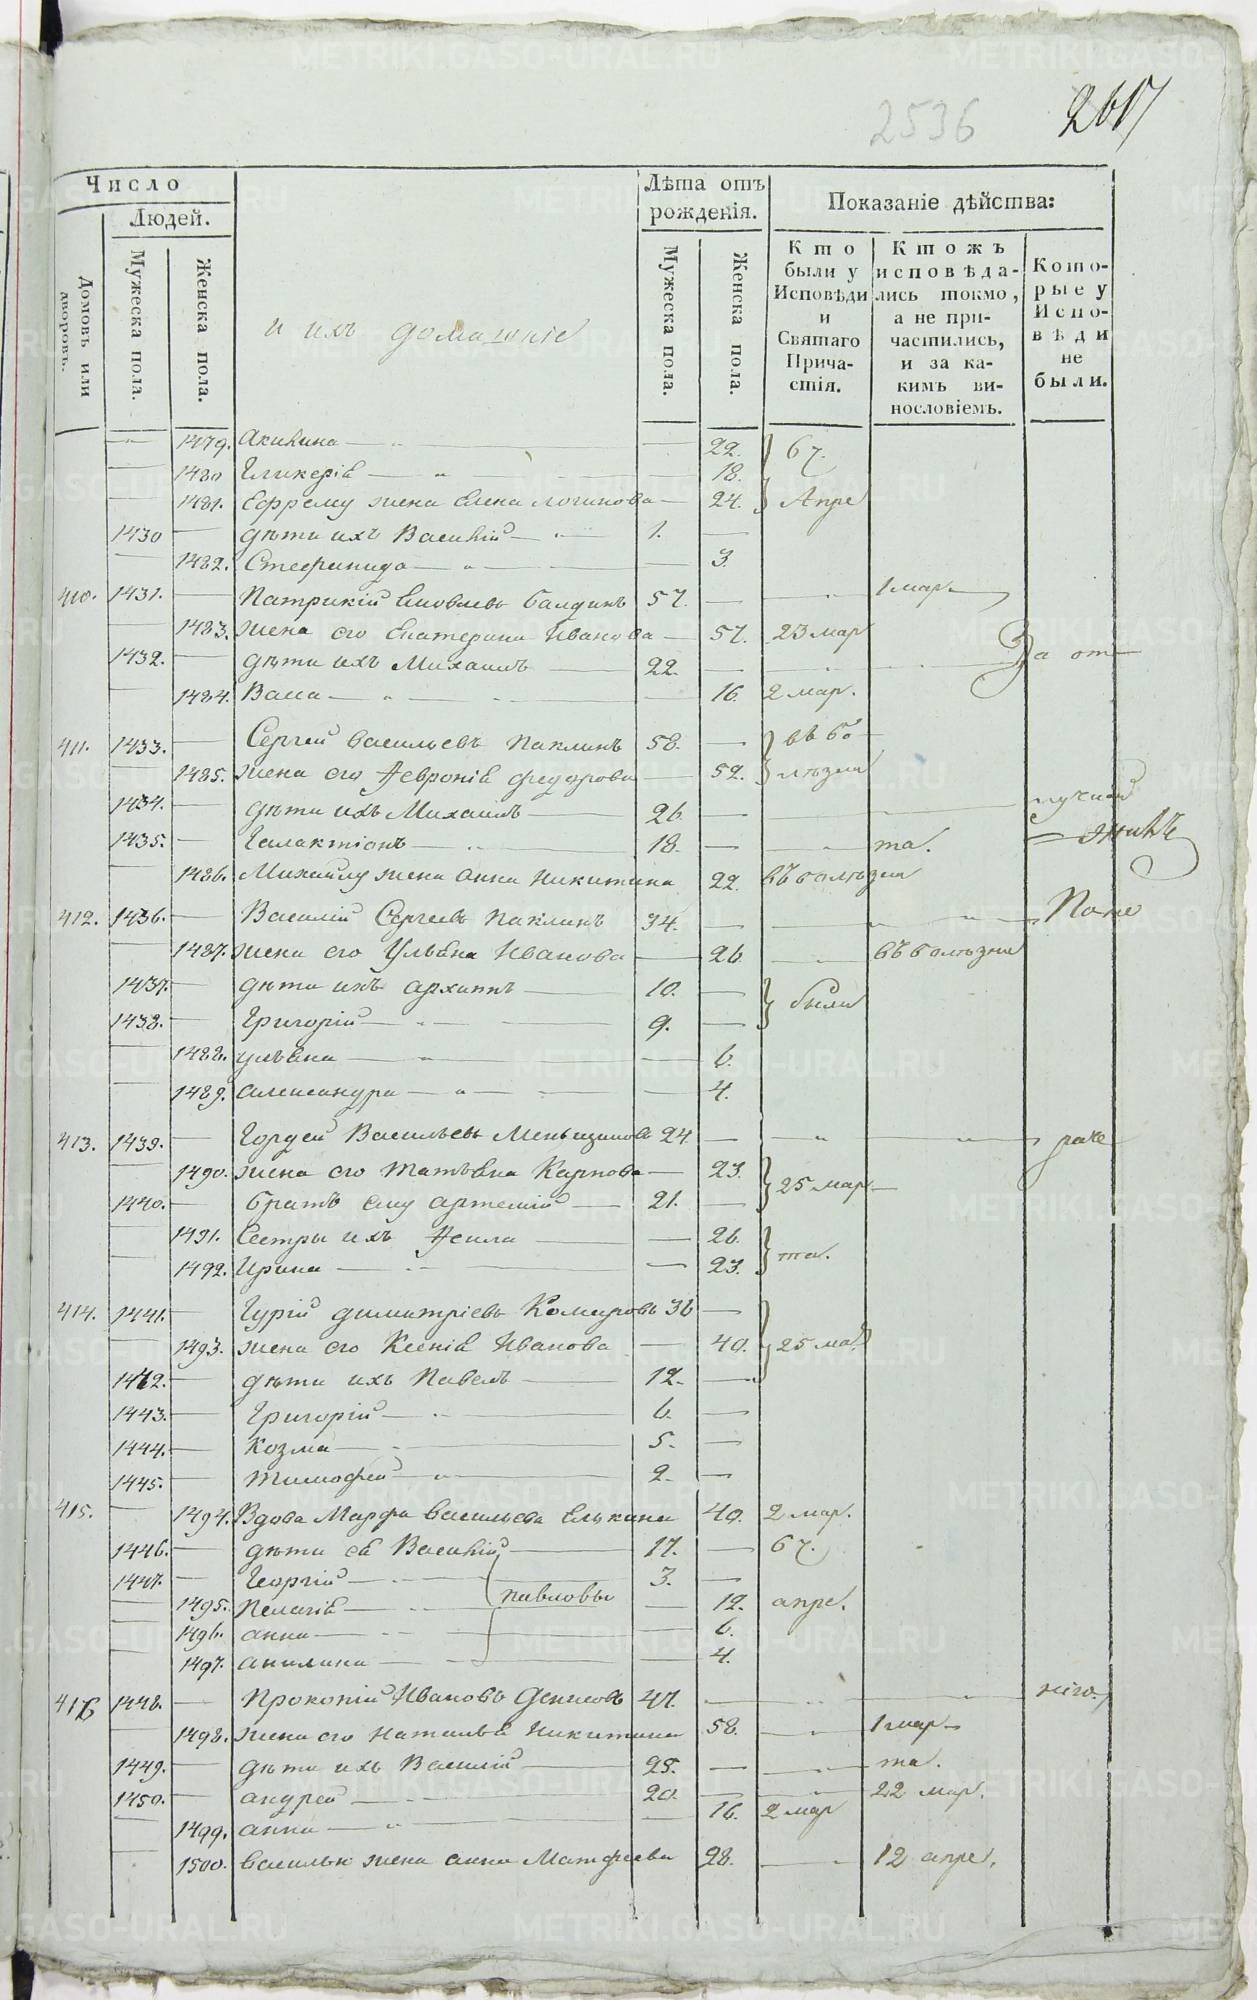 2536
2617
Число
Людей.
Домовъ или дворовъ.
Мужеска пола.
Женска пола.
и ихъ домашніе
Лѣта отъ рожденія.
Мужеска пола.
Женска пола.
Показаніе дѣйства:
Кто были у Исповѣди и Святаго Причастія.
Ктожъ исповѣдались токмо, а не причастились, и за какимъ винословіемъ.
Которые у Исповѣди не были.
1479. Акилина 22. 67.
1480 Гликерія 18.
1481. Ефрему жена Елена Логинова 24. Апре
1430 дѣти ихъ Василій 1.
1482. Стефанида 3.
410. 1431. Патрикій Яковлевъ Балдинъ 57. 1 мар.
1483. жена его Екатерина Иванова 57. 23 мар
1432. дѣти ихъ Михаилъ 22. За от
1484. Васа 16. 2 мар.
411. 1433. Сергей Васильевъ Паклинъ 58. въ бо
1485. жена его Февронія Федорова 52. лѣзни
1434. дѣти ихъ Михаилъ 26.
1435. Галактіонъ 18. та.
1486. Михайлу жена Анна Никитина 22. въ болѣзни
412. 1436. Василій Сергеевъ Паклинъ 34.
1487. жена его Ульяна Иванова 26 въ болѣзни
1437. дѣти ихъ Архиппъ 10. были
1438. Григорій 9.
1488. Ульяна 6.
1489. Александра 4.
413. 1439. Гордей Васильевъ Меньщиковъ 24
1490. жена его Татьяна Карпова 23. 25 мар
1440. братъ ему Артемій 21.
1491. Сестры ихъ 26.
1492. Ирина 23. та.
414. 1441. Гурій Димитріевъ Комаровъ 36
1493. жена его Ксенія Иванова 40. 25 ма
1442. дѣти ихъ Павелъ 12.
1443. Григорій 6.
1444. Козма 5.
1445. Тимофей 2.
415. 1494. Вдова Марфа Васильева Елькина 40. 2 мар.
1446. дѣти ея Василій 17. 67.
1447. Георгій 3.
Павловы
1495. Пелагія 12. апре.
1496. Анна 6.
1497. Акилина 4.
416 1448. Прокопій Ивановъ Денисовъ 47.
1498. жена его Наталья Никитина 58. 1 мар
1449. дѣти ихъ Василій 25. та.
1450. Андрей 20. 22 мар.
1499. Анна 16. 2 мар
1500. Василью жена Анна Матфеева 28. 12 апре.
METRIKI.GASO-URAL.RU